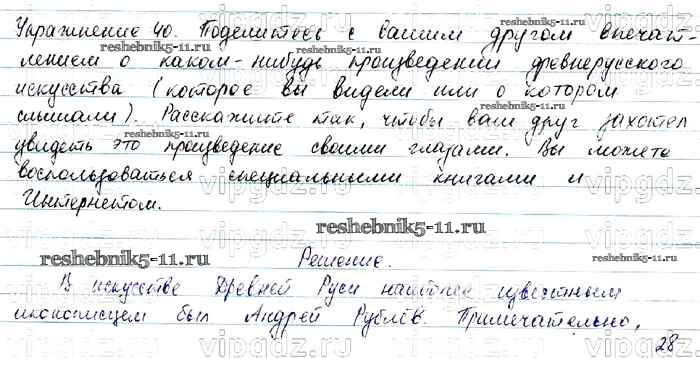 Упражнение 40. Поделитесь с вашим другом впечат-
reshebnik5-11.ru reshebnik5-11.ru
лением о каком-нибудь произведении древнерусского
искусства (которое вы видели или о котором
reshebnik5-11.ru
слышали). Расскажите так, чтобы ваш друг захотел
увидеть это произведение своими глазами. Вы можете
vipgdz.ru vipgdz.ru
воспользоваться специальными книгами и
Интернетом.
reshebnik5-11.ru
reshebnik5-11.ru Решение. reshebnik5-11.ru
В искусстве Древней Руси наиболее известным
иконописцем был Андрей Рублёв. Примечательно,
vipgdz.ru
28